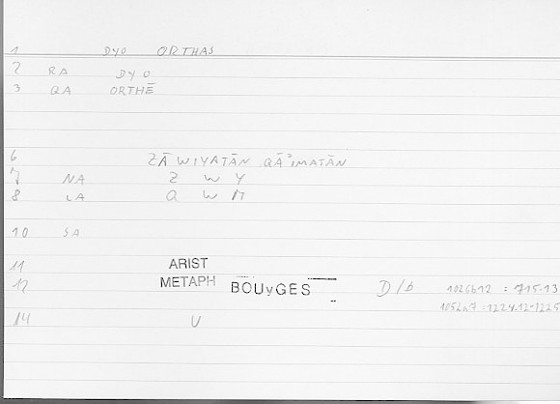 1 DYO ORTHAS
2 RA DYO
3 QA ORTHĒ
6 ZĀWIYATĀN QĀʾIMATĀN
7 NA Z W Y
8 LA Q W M
10 SA
11 ARIST
12 METAPH BOUyGES D/D 1026b12 = 715.13
1056a7 = 1224.12-1225
14 U